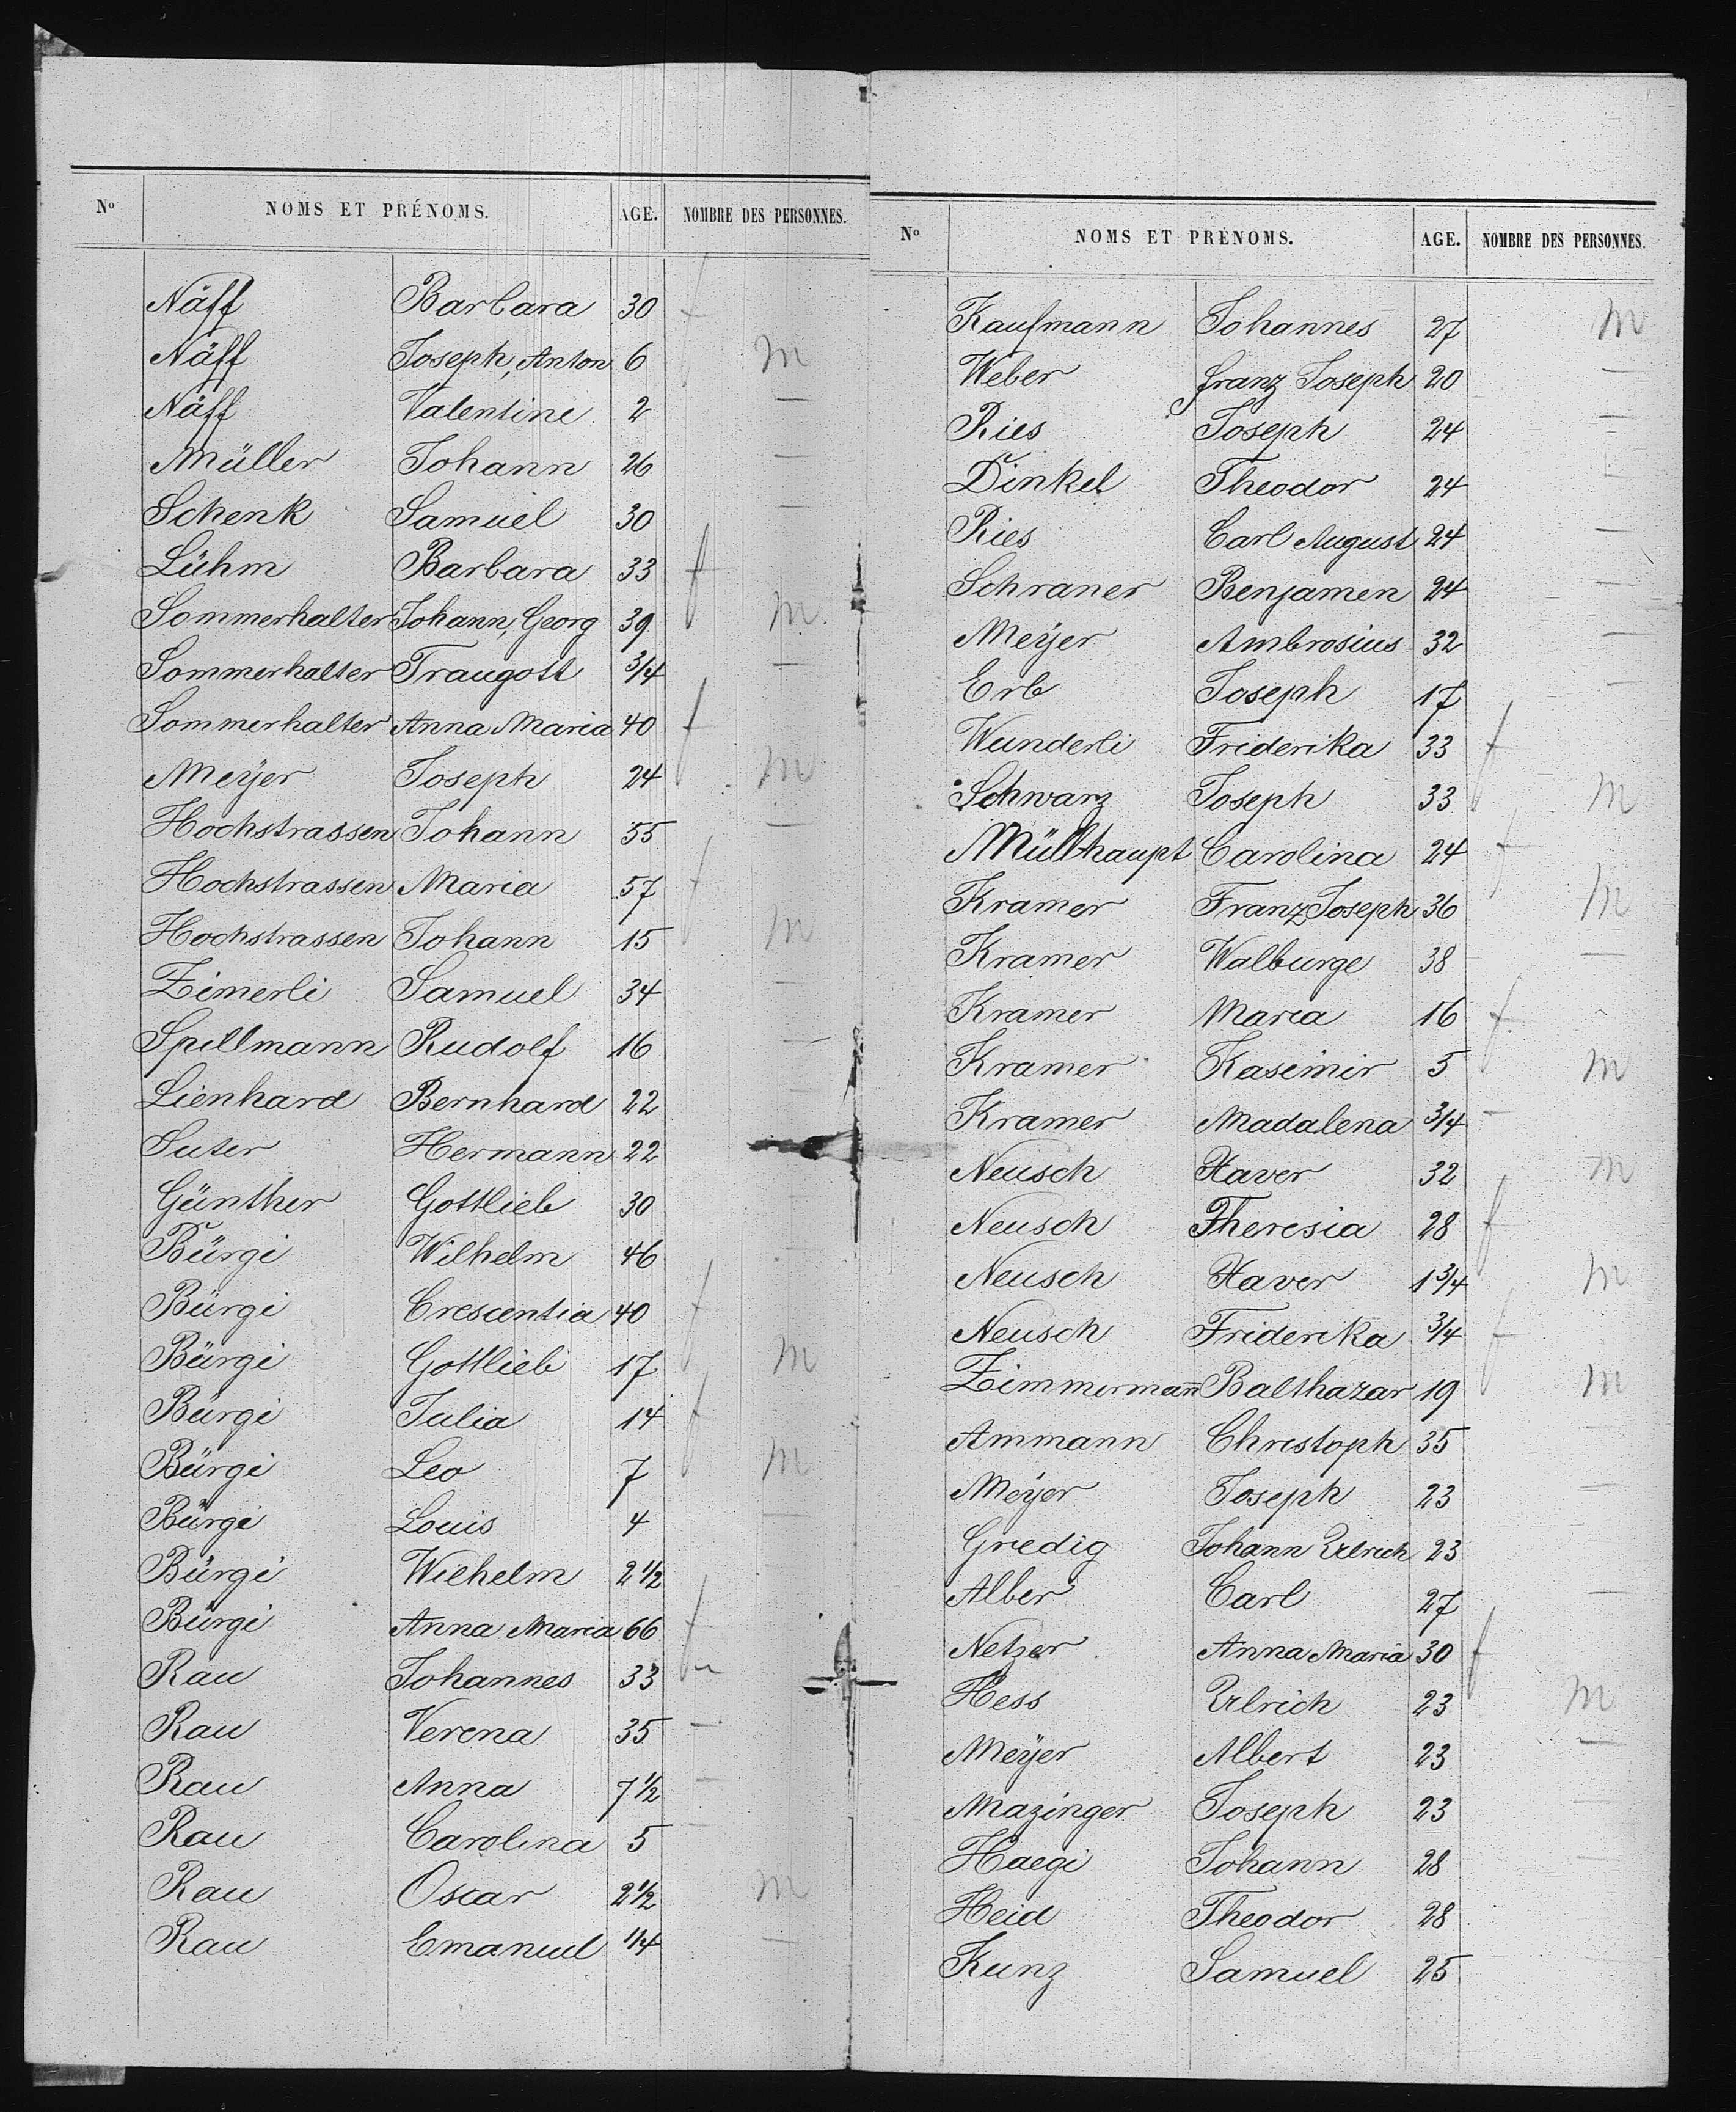 Nº NOMS ET PRÉNOMS. AGE. NOMBRE DES PERSONNES.
Näff Barbara 30 f
Näff Joseph, Anton 6 m
Näff Valentine 2 —
Müller Johann 26 —
Schenk Samuel 30 —
Lühm Barbara 33 f
Sommerhalter Johann, Georg 39 m
Sommerhalter Traugott 3/4 —
Sommerhalter Anna Maria 40 f
Meyer Joseph 24 m
Hochstrassen Johann 55 —
Hochstrassen Maria 57 f
Hochstrassen Johann 15 m
Zimerli Samuel 34 —
Spillmann Rudolf 16 —
Lienhard Bernhard 22 —
Suter Hermann 22
Günther Gottlieb 30 —
Bürgi Wilhelm 46 —
Bürgi Crescentia 40 f
Bürgi Gottlieb 17 m
Bürgi Julia 14 f
Bürgi Leo 7 m
Bürgi Louis 4 —
Bürgi Wilhelm 2 1/2 —
Bürgi Anna Maria 66 f
Rau Johannes 33
Rau Verena 35 —
Rau Anna 7 1/2 —
Rau Carolina 5 —
Rau Oscar 2 1/2 m
Rau Emanuel 1/4 —
Nº NOMS ET PRÉNOMS. AGE. NOMBRE DES PERSONNES.
Kaufmann Johannes 27 m
Weber Franz Joseph 20 —
Ries Joseph 24 —
Dinkel Theodor 24 —
Ries Carl August 24 —
Schraner Benjamen 24 —
Meyer Ambrosius 32 —
Erb Joseph 17 —
Wunderli Friderika 33 f
Schwarz Joseph 33 m
Müllhaupt Carolina 24 f
Kramer Franz Joseph 36 m
Kramer Walburge 38 —
Kramer Maria 16 f
Kramer Kasimir 5 m
Kramer Madalena 3/4 —
Neusch Xaver 32 m
Neusch Theresia 28 f
Neusch Xaver 1 3/4 m
Neusch Friderika 3/4 f
Zimmermañ Balthazar 19 m
Ammann Christoph 35 —
Meyer Joseph 23 —
Gredig Johann Ulrich 23 —
Alber Carl 27 —
Netzer Anna Maria 30 f
Hess Ulrich 23 m
Meyer Albert 23 —
Mazinger Joseph 23 —
Haegi Johann 28 —
Heid Theodor 28 —
Kunz Samuel 25 —